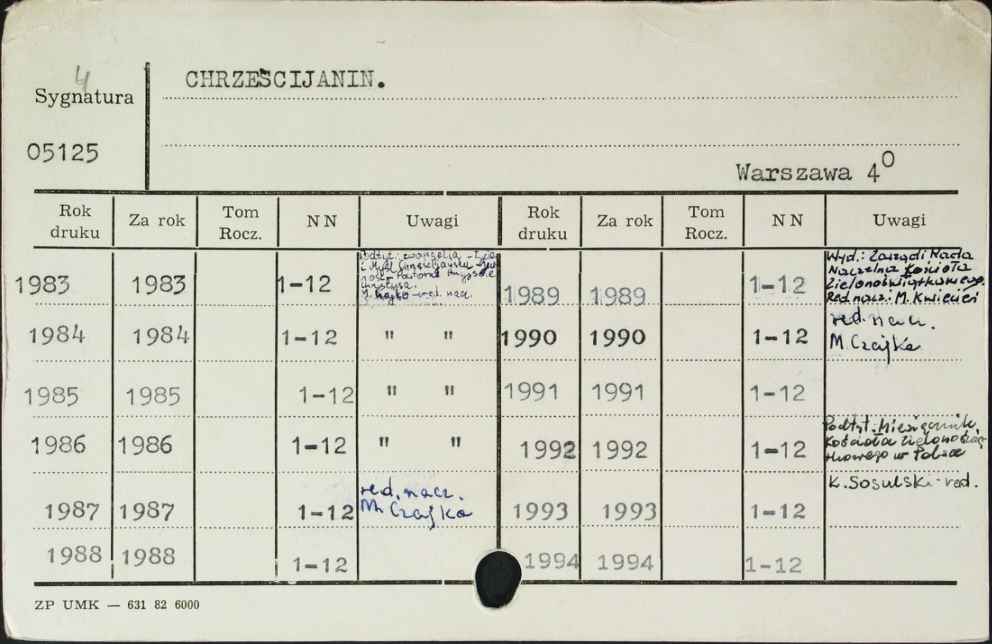 4
CHRZEŚCIJANIN.
Sygnatura
05125
Warszawa 4⁰
Rok druku Za rok Tom Rocz. NN Uwagi Rok druku Za rok Tom Rocz. NN Uwagi
1983 1983 1-12
J. Krajko-red. nacz.
1989 1989 1-12 Wyd.: Zarządi Rada
Naczelna Kościoła
Zielonoświątkowego.
Red nacz: M. Kwiecień
1984 1984 1-12 " "
1990 1990 1-12 red. nacz.
M. Czajka
1985 1985 1-12 " "
1991 1991 1-12
1986 1986 1-12 " "
1992 1992 1-12 Podtyt. Miesięcznik
Kościoła Zielonoświą-
tkowego w Polsce
1987 1987 1-12 red. nacz.
M. Czajka
1993 1993 1-12 K. Sosulski-red.
1988 1988 1-12
1994 1994 1-12
ZP UMK — 631 82 6000